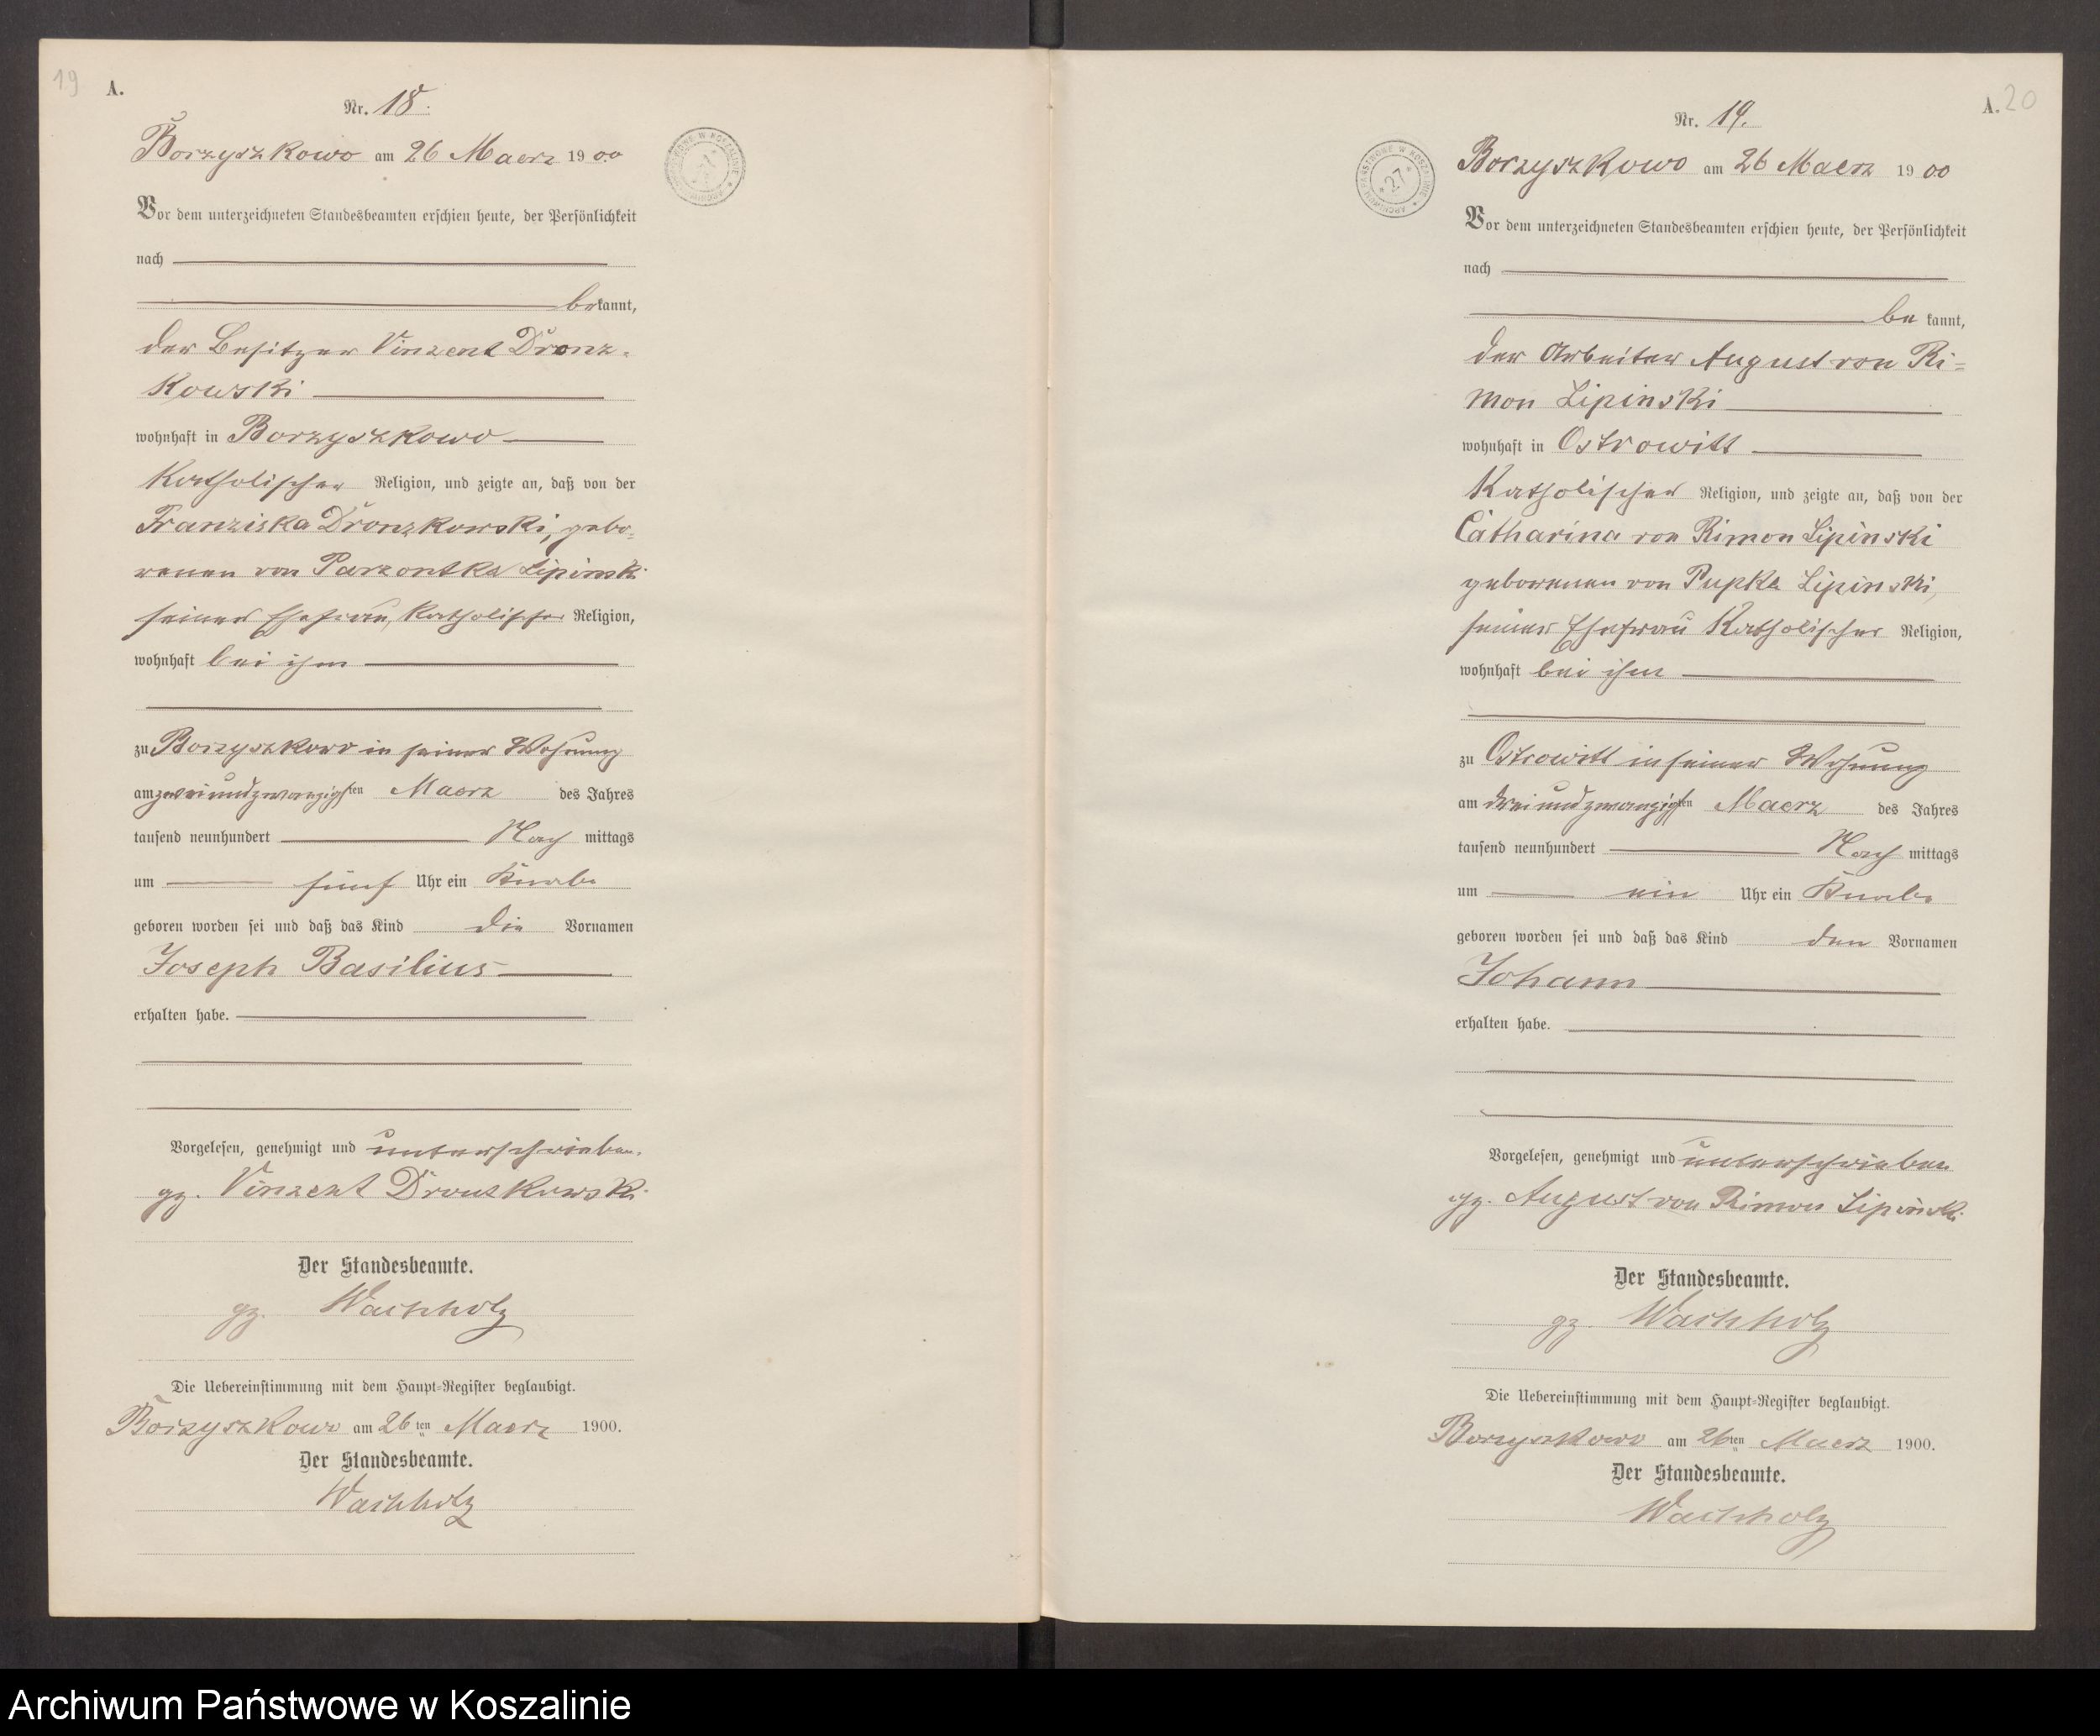 19
A.
Nr. 18.
Borzyszkowo am 26 Maerz 1900
Vor dem unterzeichneten Standesbeamten erschien heute, der Persönlichkeit
nach
bekannt,
der Besitzer Vinzent Dronz-
kowski
wohnhaft in Borzyszkowo
katholischer Religion, und zeigte an, daß von der
Franziska Dronzkowski, gebo-
renen von Parzontka Lipinski
seiner Ehefrau, katholischer Religion,
wohnhaft bei ihm
zu Borzyszkowo in seiner Wohnung
am zweiundzwanzigsten Maerz des Jahres
tausend neunhundert Nach mittags
um fünf Uhr ein Knabe
geboren worden sei und daß das Kind die Vornamen
Joseph Basilius
erhalten habe.
Vorgelesen, genehmigt und unterschrieben.
gz. Vinzent Dronzkowski
Der Standesbeamte.
gz. Wachholz
Die Uebereinstimmung mit dem Haupt-Register beglaubigt.
Borzyszkowo am 26ten Maerz 1900.
Der Standesbeamte.
Wachholz
A. 20
Nr. 19.
ARCHIWUM PAŃSTWOWE W KOSZALINIE
27
Borzyszkowo am 26 Maerz 1900
Vor dem unterzeichneten Standesbeamten erschien heute, der Persönlichkeit
nach
be kannt,
der Arbeiter August von Ri-
mon Lipinski
wohnhaft in Ostrowitt
katholischer Religion, und zeigte an, daß von der
Catharina von Rimon Lipinski
geborenen von Pupka Lipinski,
seiner Ehefrau katholischer Religion,
wohnhaft bei ihm
zu Ostrowitt in seiner Wohnung
am dreiundzwanzigsten Maerz des Jahres
tausend neunhundert Nach mittags
um ein Uhr ein Knabe
geboren worden sei und daß das Kind den Vornamen
Johann
erhalten habe.
Vorgelesen, genehmigt und unterschrieben
gz. August von Rimon Lipinski
Der Standesbeamte.
gz. Wachholz
Die Uebereinstimmung mit dem Haupt-Register beglaubigt.
Borzyszkowo am 26ten Maerz 1900.
Der Standesbeamte.
Wachholz
Archiwum Państwowe w Koszalinie